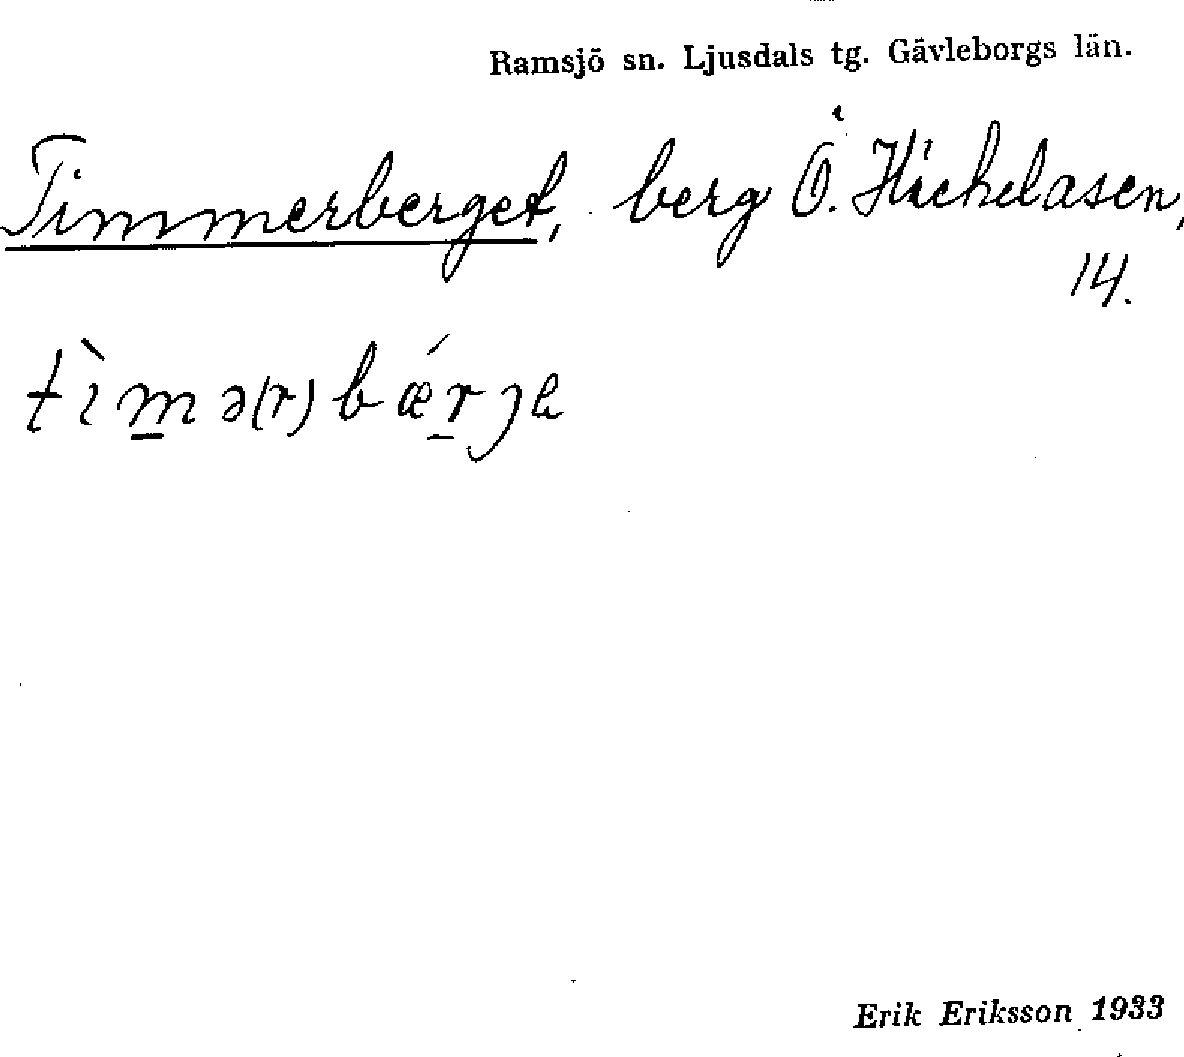 Ramsjö sn. Ljusdals tg. Gävleborgs län.
Timmerberget, berg Ö. Häckelåsen,
14.
tìmə(r)bǽrȷe
Erik Eriksson 1933